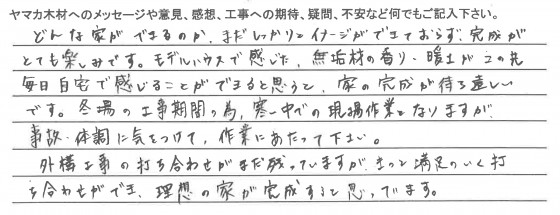 ヤマカ木材へのメッセージや意見、感想、工事への期待、疑問、不安など何でもご記入下さい。
どんな家ができるのか、まだしっかりとイメージができておらず、完成が
とても楽しみです。モデルハウスで感じた、無垢材の香り、暖土がこの先
毎日自宅で感じることができると思うと、家の完成が待ち遠しい
です。冬場の工事期間の為、寒い中での現場作業となりますが、
事故・体調に気をつけて、作業にあたって下さい。
外構工事の打ち合わせがまだ残っていますが、きっと満足のいく打
ち合わせができ、理想の家が完成すると思っています。